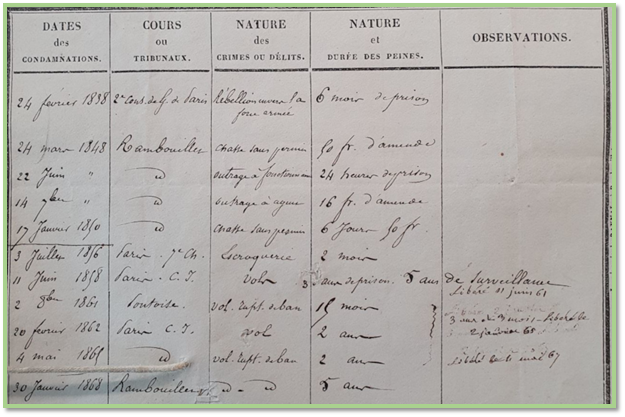 DATES des CONDAMNATIONS. COURS ou TRIBUNAUX. NATURE des CRIMES OU DÉLITS. NATURE et DURÉE DES PEINES. OBSERVATIONS.
24 février 1838 2e Cons. de G. de Paris Rébellion envers la force armée 6 mois de prison
24 mars 1848 Rambouillet chasse sans permis 50 fr. d'amende
22 Juin " id outrage à fonctionnaire 24 heures de prison
14 7bre " id outrage à agent 16 fr. d'amende
17 Janvier 1850 id chasse sans permis 6 Jours 50 fr.
3 Juillet 1856 Paris. 7e Ch. Escroquerie 2 mois
11 Juin 1858 Paris. C. I. Vols 3 ans de prison. 5 ans de Surveillance
Libéré 11 juin 61
2 8bre 1861 Pontoise vol. rupt. de ban 15 mois
20 février 1862 Paris C. I. vol 2 ans 3 ans 3 mois
2 janvier 65
4 mai 1865 id vol. rupt. de ban 2 ans Libéré mai 67
30 Janvier 1868 Rambouillet id - id 5 ans